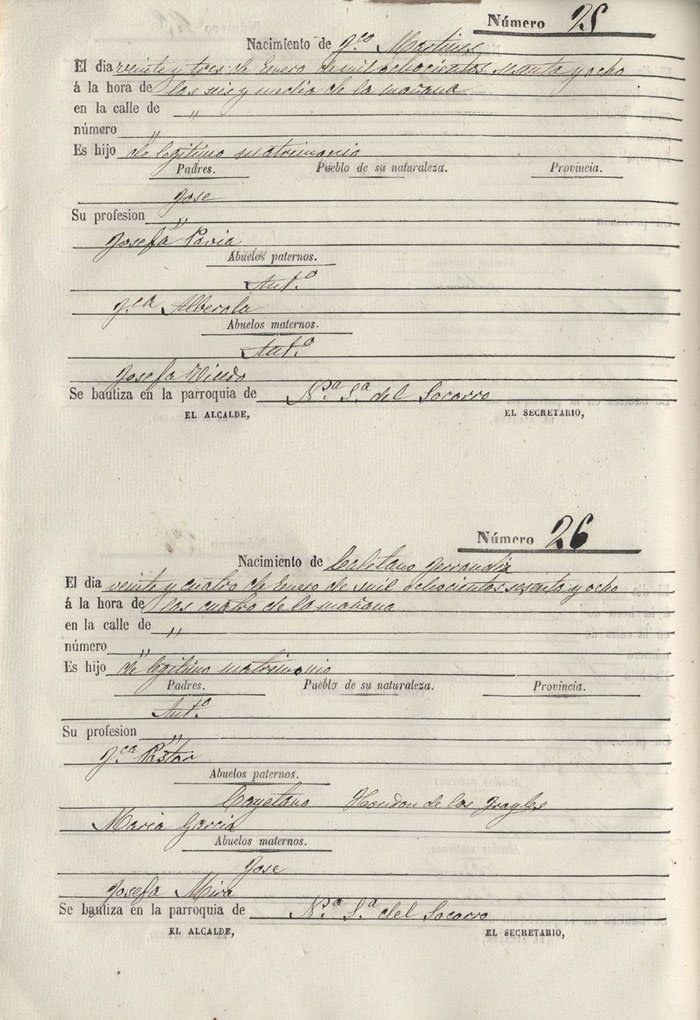 Número 25
Nacimiento de Fco Martines
El dia veinte y tres de Enero de mil ochocientos sesenta y ocho
á la hora de las seis y media de la mañana
en la calle de "
número "
Es hijo de legitimo matrimonio
Padres. Pueblo de su naturaleza. Provincia.
Jose
Su profesion "
Josefa Pavia
Abuelos paternos.
Anto
Fca Alberola
Abuelos maternos.
Anto
Josefa
Se bautiza en la parroquia de Na Sa del Socorro
EL ALCALDE, EL SECRETARIO,
Número 26
Nacimiento de
El dia veinte y cuatro de Enero de mil ochocientos sesenta y ocho
á la hora de las cuatro de la mañana
en la calle de "
número "
Es hijo de legitimo matrimonio
Padres. Pueblo de su naturaleza. Provincia.
Anto
Su profesion "
Fca Pastor
Abuelos paternos.
Cayetano Hondon de los Frayles
Maria Garcia
Abuelos maternos.
Jose
Josefa Mira
Se bautiza en la parroquia de Na Sa del Socorro
EL ALCALDE, EL SECRETARIO,